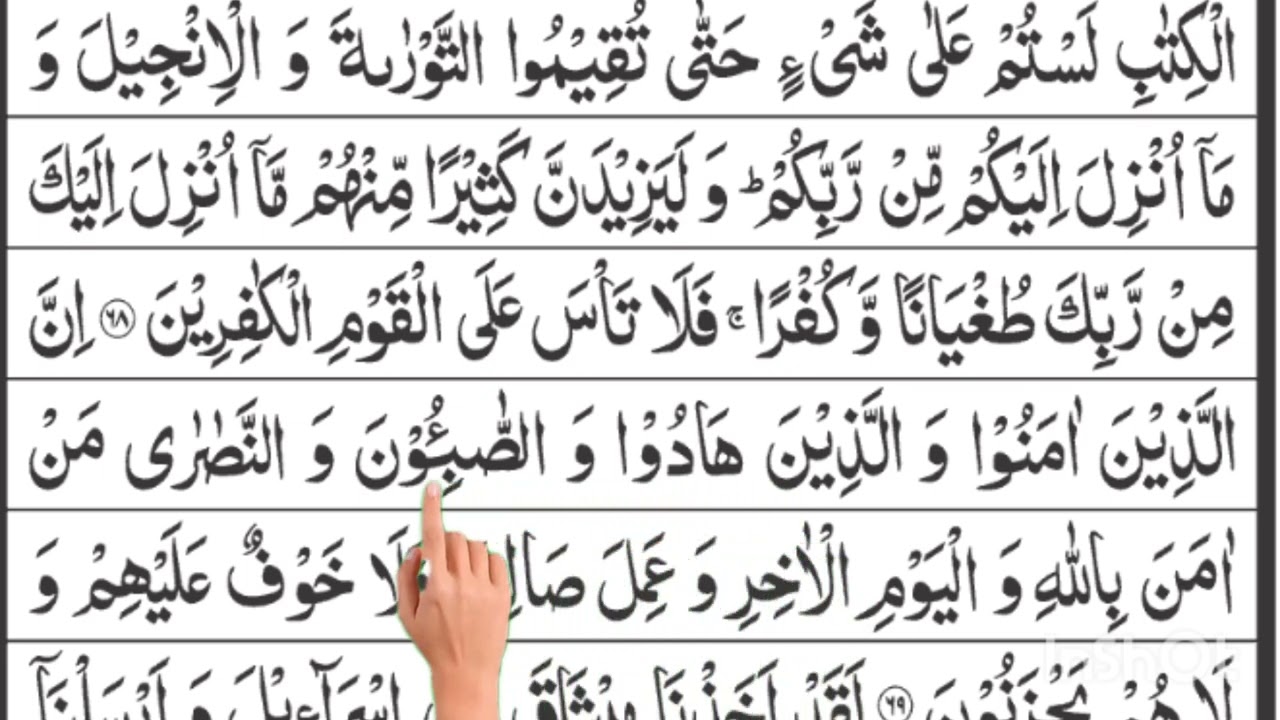 الْكِتٰبِ لَسْتُمْ عَلٰى شَیْءٍ حَتّٰى تُقِیْمُوا التَّوْرٰىةَ وَ الْاِنْجِیْلَ وَ
مَاۤ اُنْزِلَ اِلَیْكُمْ مِّنْ رَّبِّكُمْؕ وَ لَیَزِیْدَنَّ كَثِیْرًا مِّنْهُمْ مَّاۤ اُنْزِلَ اِلَیْكَ
مِنْ رَّبِّكَ طُغْیَانًا وَّ كُفْرًاۚ فَلَا تَاْسَ عَلَى الْقَوْمِ الْكٰفِرِیْنَ ۝۶۸ اِنَّ
الَّذِیْنَ اٰمَنُوْا وَ الَّذِیْنَ هَادُوْا وَ الصّٰبِـُٔوْنَ وَ النَّصٰرٰى مَنْ
اٰمَنَ بِاللّٰهِ وَ الْیَوْمِ الْاٰخِرِ وَ عَمِلَ خَوْفٌ عَلَیْهِمْ وَ
لَا هُمْ یَحْزَنُوْنَ ۝۶۹ لَقَدْ اَخَذْنَا مِیْثَاقَ اِسْرَآءِیْلَ وَ اَرْسَلْنَاۤ
InShOt